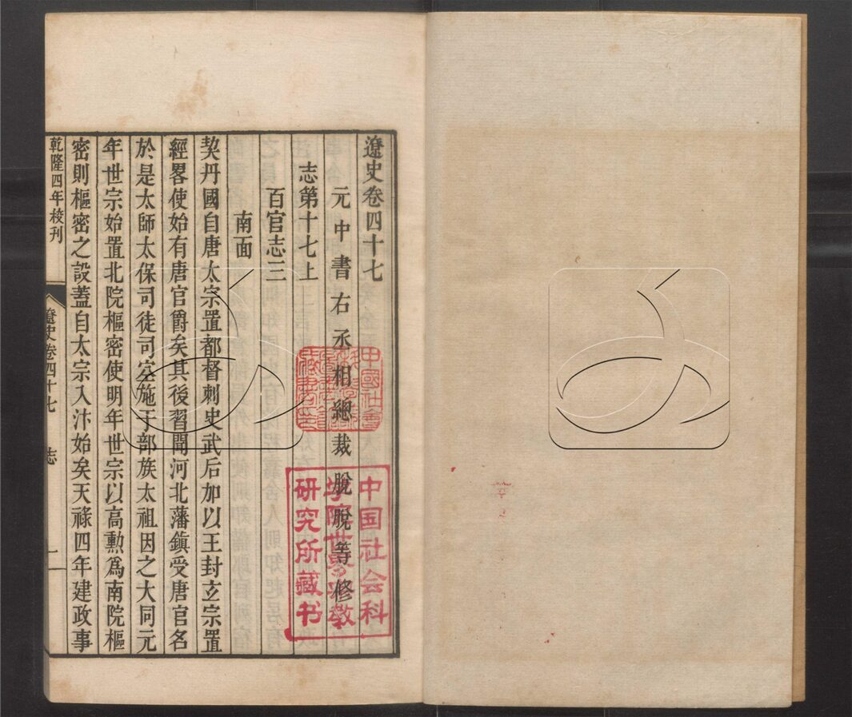 遼史卷四十七
元中書右丞相總裁脫脫等修
志第十七上
百官志三
南面
契丹國自唐太宗置都督刺史武后加以王封玄宗置
經畧使始有唐官爵矣其後習聞河北藩鎮受唐官名
於是太師太保司徒司空施于部族太祖因之大同元
年世宗始置北院樞密使明年世宗以高勲爲南院樞
密則樞密之設蓋自太宗入汴始矣天祿四年建政事
乾隆四年校刊
遼史卷四十七 志
一
中国社会科
学院世界宗教
研究所藏书